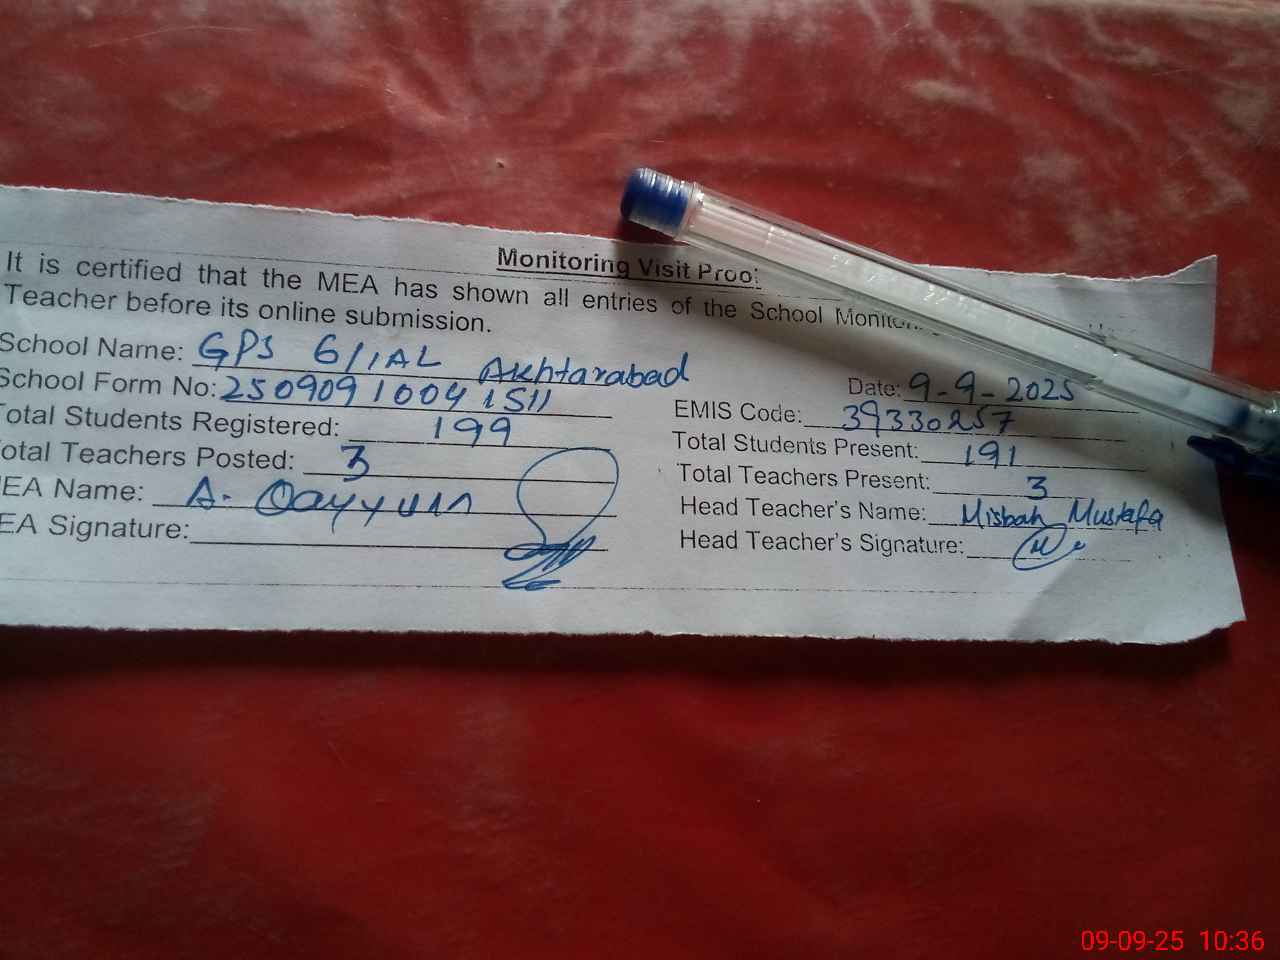 Monitoring Visit Proof
It is certified that the MEA has shown all entries of the School Monitor
Teacher before its online submission.
School Name: GPS 6/1AL Akhtarabad
Date: 9-9-2025
School Form No: 25090910041511
EMIS Code: 39330257
Total Students Registered: 199
Total Students Present: 191
Total Teachers Posted: 3
Total Teachers Present: 3
MEA Name: A. Qayyum
Head Teacher's Name: Misbah Mustafa
EA Signature:
Head Teacher's Signature:
09-09-25 10:36